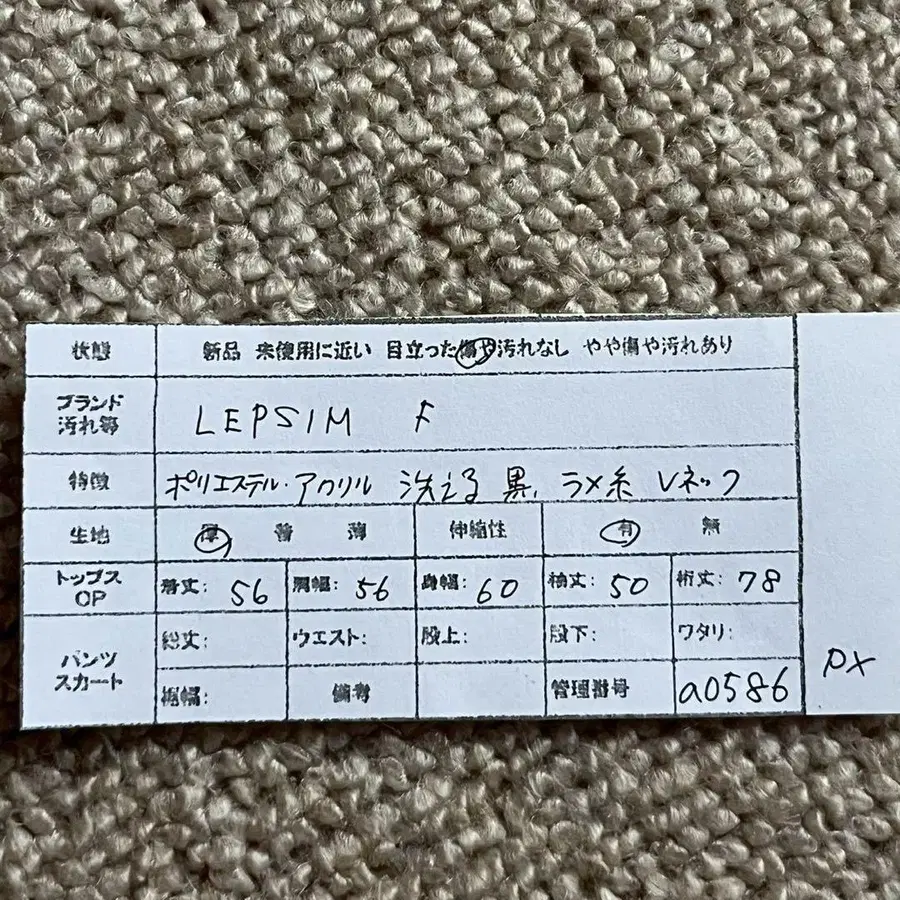 状態 新品 未使用に近い 目立った傷や汚れなし やや傷や汚れあり
ブランド
汚れ等
LEPSIM F
特徴 ポリエステル・アクリル 洗える 黒、ラメ糸 Vネック
生地 厚 普 薄 伸縮性 有 無
トップス
OP
着丈: 56 肩幅: 56 身幅: 60 袖丈: 50 裄丈: 78
パンツ
スカート
総丈: ウエスト: 股上: 股下: ワタリ:
裾幅: 備考 管理番号 a0586
PX